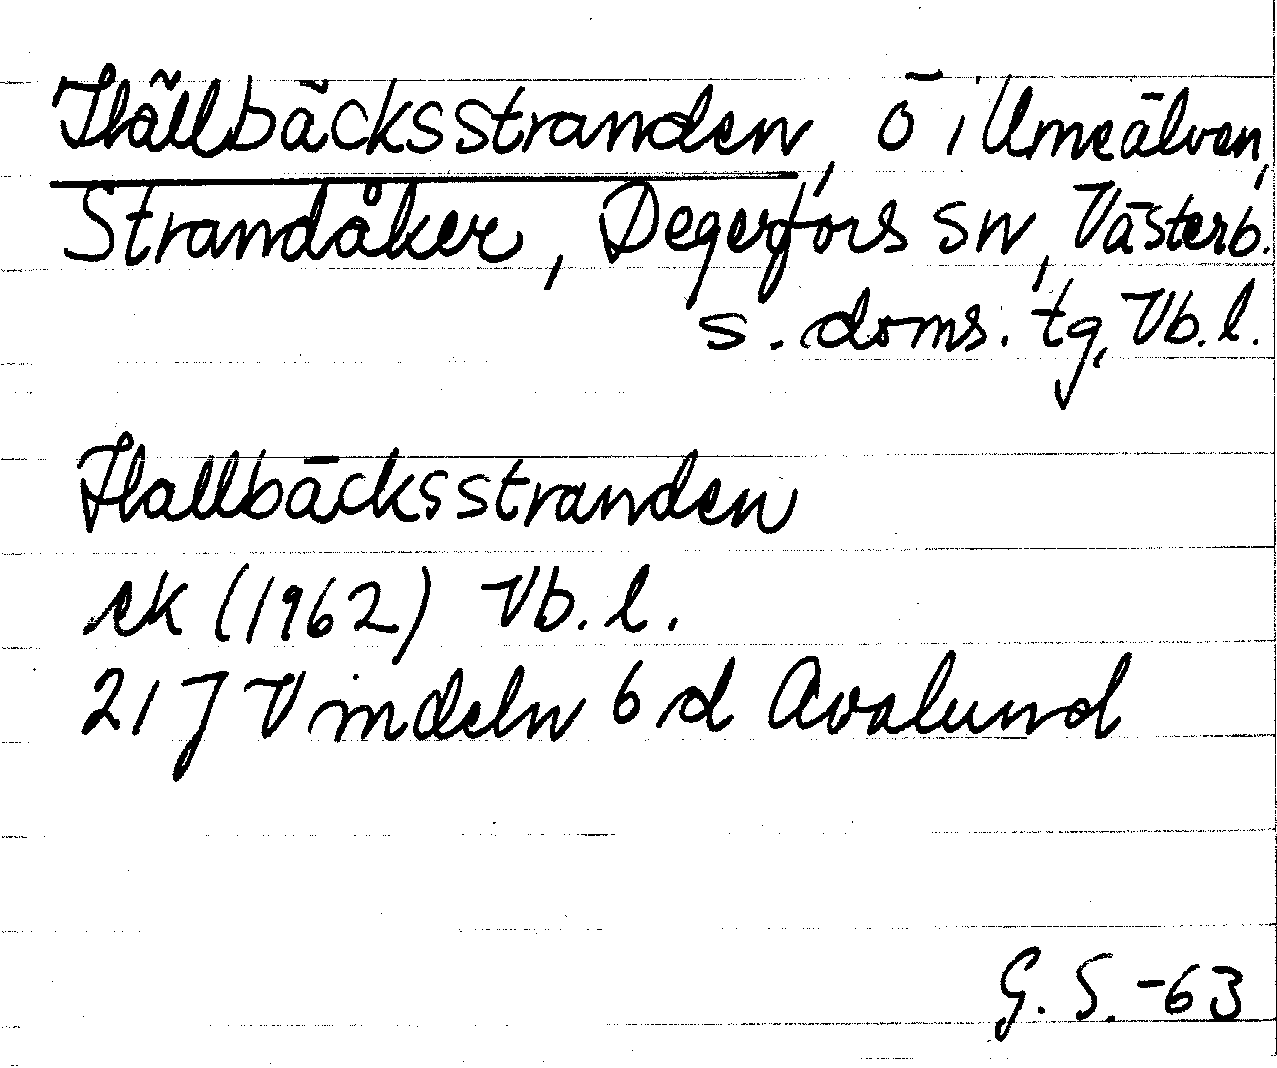 Hällbäcksstranden, ö i Umeälven,
Strandåker, Degerfors sn, Västerb.
s. doms. tg, Vb. l.
Hallbäcksstranden
ek (1962) Vb. l.
21J Vindeln 6 d Avalund
G. S. -63